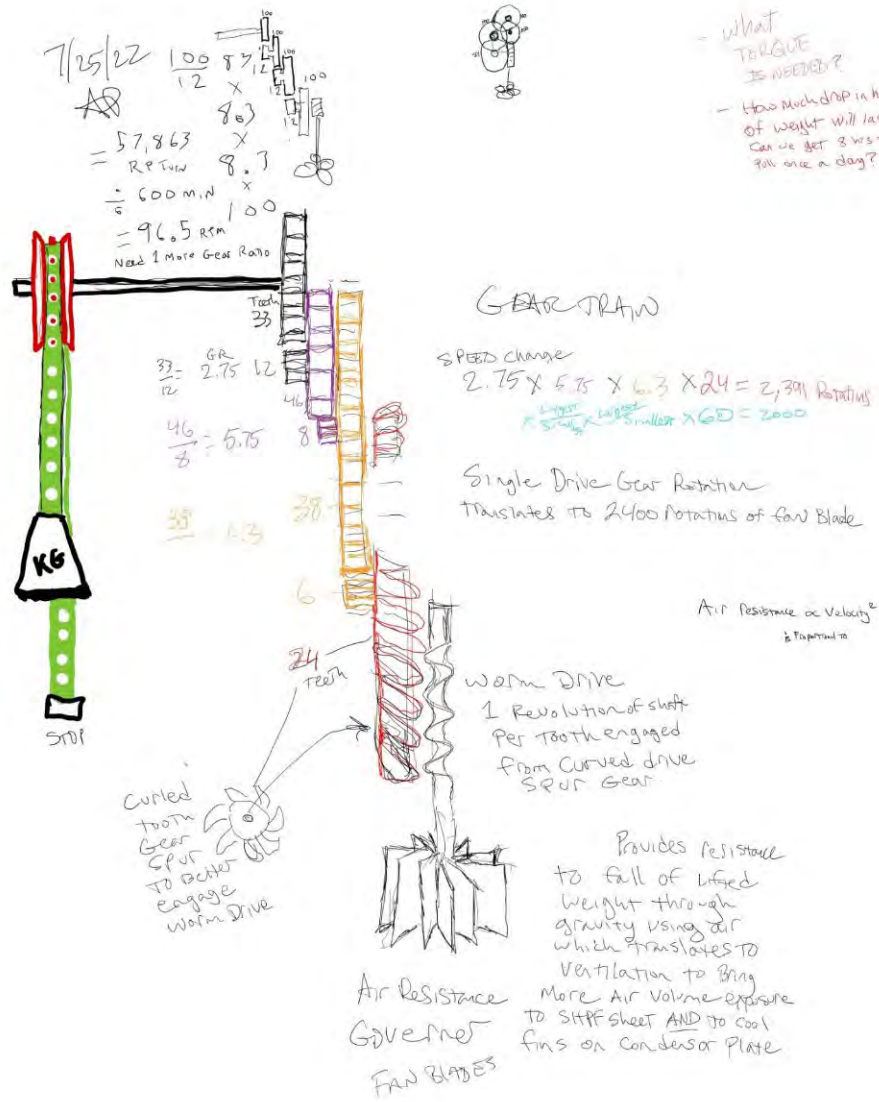 7/25/22
100
12
83
x
8.3
x
8.3
x
100
= 57,863
RPTurn
÷ 600 min
= 96.5 RPM
Need 1 More Gear Ratio
100
12
100
12
100
12
100
12
100
- What
TORQUE
IS NEEDED?
- How Much drop in h
of weight will la
Can we get 8 hrs
Pull once a day?
Teeth
33
GR
33
12
= 2.75
12
46
46
8
= 5.75
8
38
38
6
24
Teeth
KG
STOP
GEAR TRAIN
SPEED Change
2.75 X 5.75 X 6.3 X 24 = 2,391 Rotations
X Largest
Smallest
X Largest
Smallest
X 60 = 2000
Single Drive Gear Rotation
translates to 2400 rotations of fan Blade
Air Resistance ∝ Velocity²
is Proportional to
Worm Drive
1 Revolution of shaft
Per Tooth engaged
from Curved drive
Spur Gear
Curled
tooth
Gear
Spur
To Better
engage
worm Drive
Provides resistance
to fall of lifted
weight through
gravity using air
which translates TO
Ventilation to Bring
More Air Volume exposure
TO SHPF sheet AND to cool
fins on condensor Plate
Air Resistance
Governer
FAN BLADES